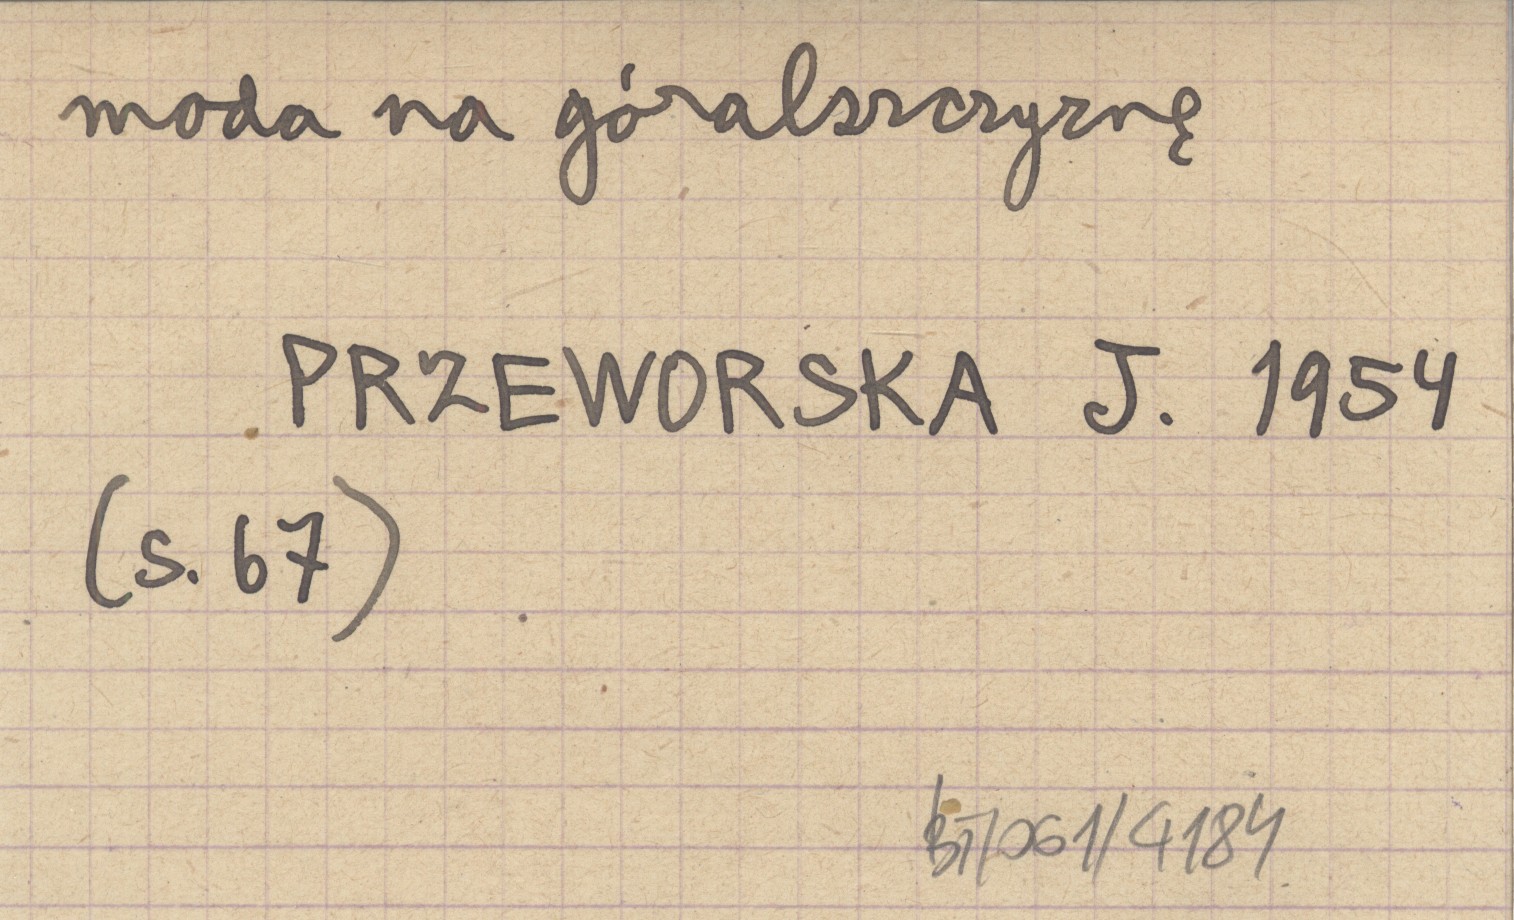 moda na góralszczyznę
PRZEWORSKA J. 1954
(s. 67)
BT/061/4184